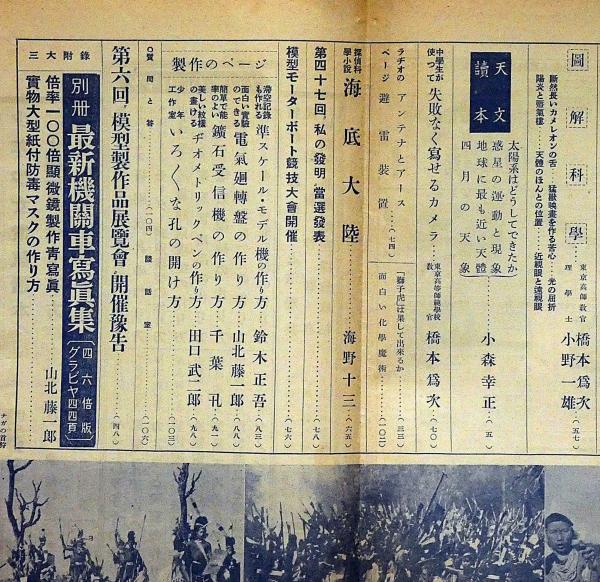 圖解科學
斷然長いカメレオンの舌……猛獸映畫を作る苦心……光の屈折
陽炎と蜃氣樓……天體のほんとの位置……近視眼と遠視眼
東京高師教官 橋本爲次
理學士 小野一雄…(五七)
天文讀本
太陽系はどうしてできたか
惑星の運動と現象
地球に最も近い天體
四月の天象
小森幸正…(五)
中學生が使つて失敗なく寫せるカメラ…東京高等師範學校教官 橋本爲次…(七〇)
ラヂオのページ
アンテナとアース
避雷裝置…(七四)
「獅子虎」は果して出來るか…(三三)
面白い化學魔術…(一〇二)
探偵科學小説 海底大陸…海野十三…(六五)
第四十七回、私の發明・當選發表…(七八)
模型モーターボート競技大會開催…(七六)
製作のページ
滯空記録も作れる 準スケール・モデル機の作り方…鈴木正吾…(八三)
面白い實驗のできる 電氣廻轉盤の作り方…山北藤一郎…(八八)
簡單で能率のよい 鑛石受信機の作り方…千葉孔…(九一)
美しい紋樣の畫ける ヂオメトリックペンの作り方…田口武二郎…(九八)
少年工作室 いろ〱な孔の開け方…(一〇三)
○質問と答…(一〇四)
談話室…(一〇六)
第六回、模型製作品展覽會・開催豫告…(四八)
三大附錄
別册 最新機關車寫眞集〔四六倍版 グラビヤ四四頁〕
倍率一〇〇倍顯微鏡製作靑寫眞…山北藤一郎
實物大型紙付防毒マスクの作り方
ナガの首狩